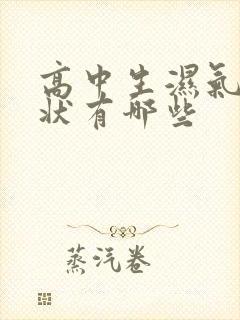 高中生濕氣
狀有哪些
蒸汽卷